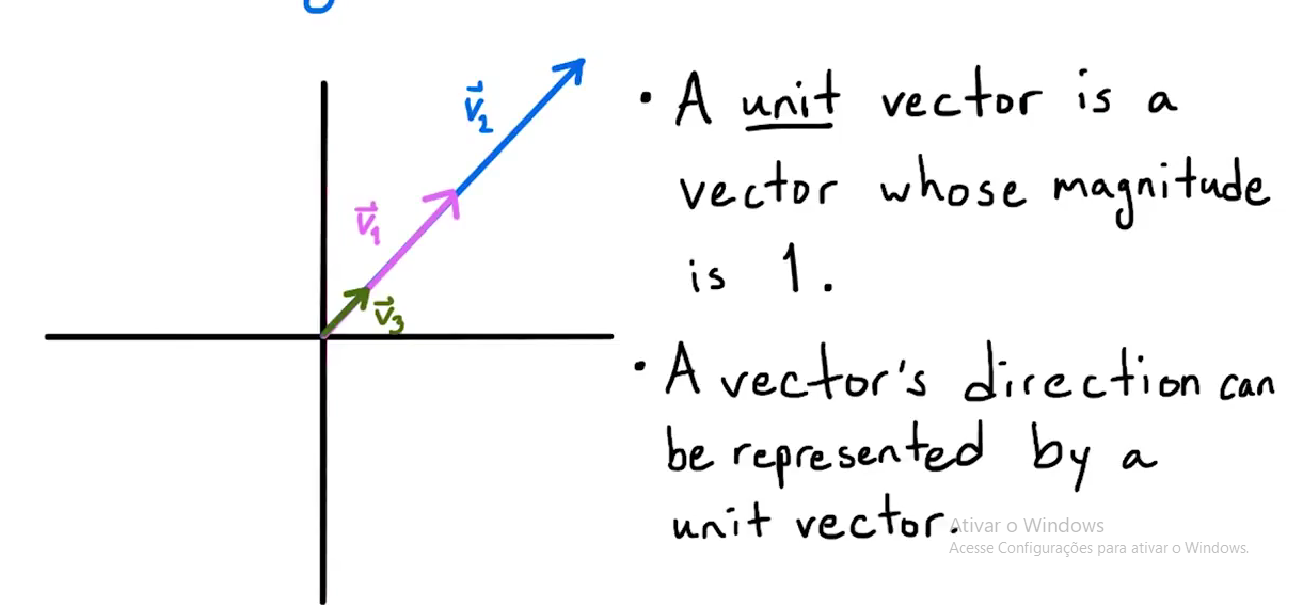 v⃗₂
v⃗₁
v⃗₃
• A unit vector is a
vector whose magnitude
is 1.
• A vector's direction can
be represented by a
unit vector.
Ativar o Windows
Acesse Configurações para ativar o Windows.